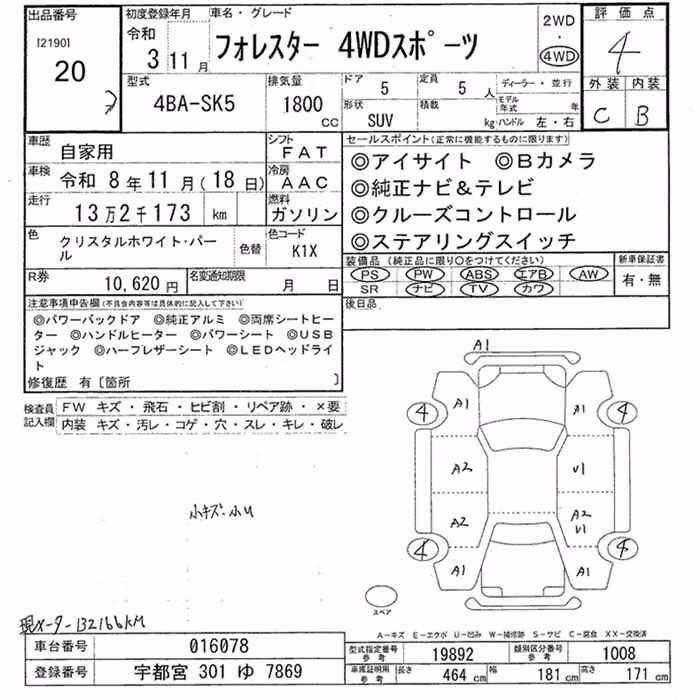 出品番号
[21901
20
初度登録年月
令和
3 11月
車名・グレード
フォレスター 4WDスポーツ
2WD
・
4WD
評価点
4
外装 内装
C B
型式
4BA-SK5
排気量
1800 CC
ドア 5
定員 5 人
形状 SUV
積載 kg
ディーラー・並行
モデル年式 年
ハンドル 左・右
車歴 自家用
シフト FAT
車検 令和 8年11月(18日)
冷房 AAC
走行 13万2千173 km
燃料 ガソリン
色 クリスタルホワイト・パール
色替
色コード K1X
R券 10,620円
名変通知期限 月 日
セールスポイント(正常に機能するものに限ります)
◎アイサイト ◎Bカメラ
◎純正ナビ&テレビ
◎クルーズコントロール
◎ステアリングスイッチ
装備品(純正品に限り○をつけてください)
PS PW ABS エアB AW
SR ナビ TV カワ
新車保証書
有・無
後日品
注意事項申告欄(不具合内容等は具体的に記入して下さい)
◎パワーバックドア ◎純正アルミ ◎両席シートヒー
ター ◎ハンドルヒーター ◎パワーシート ◎USB
ジャック ◎ハーフレザーシート ◎LEDヘッドライ
ト
修復歴 有〔箇所 〕
検査員記入欄
FW キズ・飛石・ヒビ割・リペア跡・×要
内装 キズ・汚レ・コゲ・穴・スレ・キレ・破レ
小キズ・小U
現メーター132166KM
A1
A1 A1
4 4
A2 U1
A2 A2
U1
4 4
A1 A1
スペア
A-キズ E-エクボ U-凹み W-補修跡 S-サビ C-腐食 XX-交換済
車台番号 016078
登録番号 宇都宮 301 ゆ 7869
型式指定番号 参考 19892
類別区分番号 参考 1008
車庫証明用 参考 長さ 464 cm 幅 181 cm 高さ 171 cm